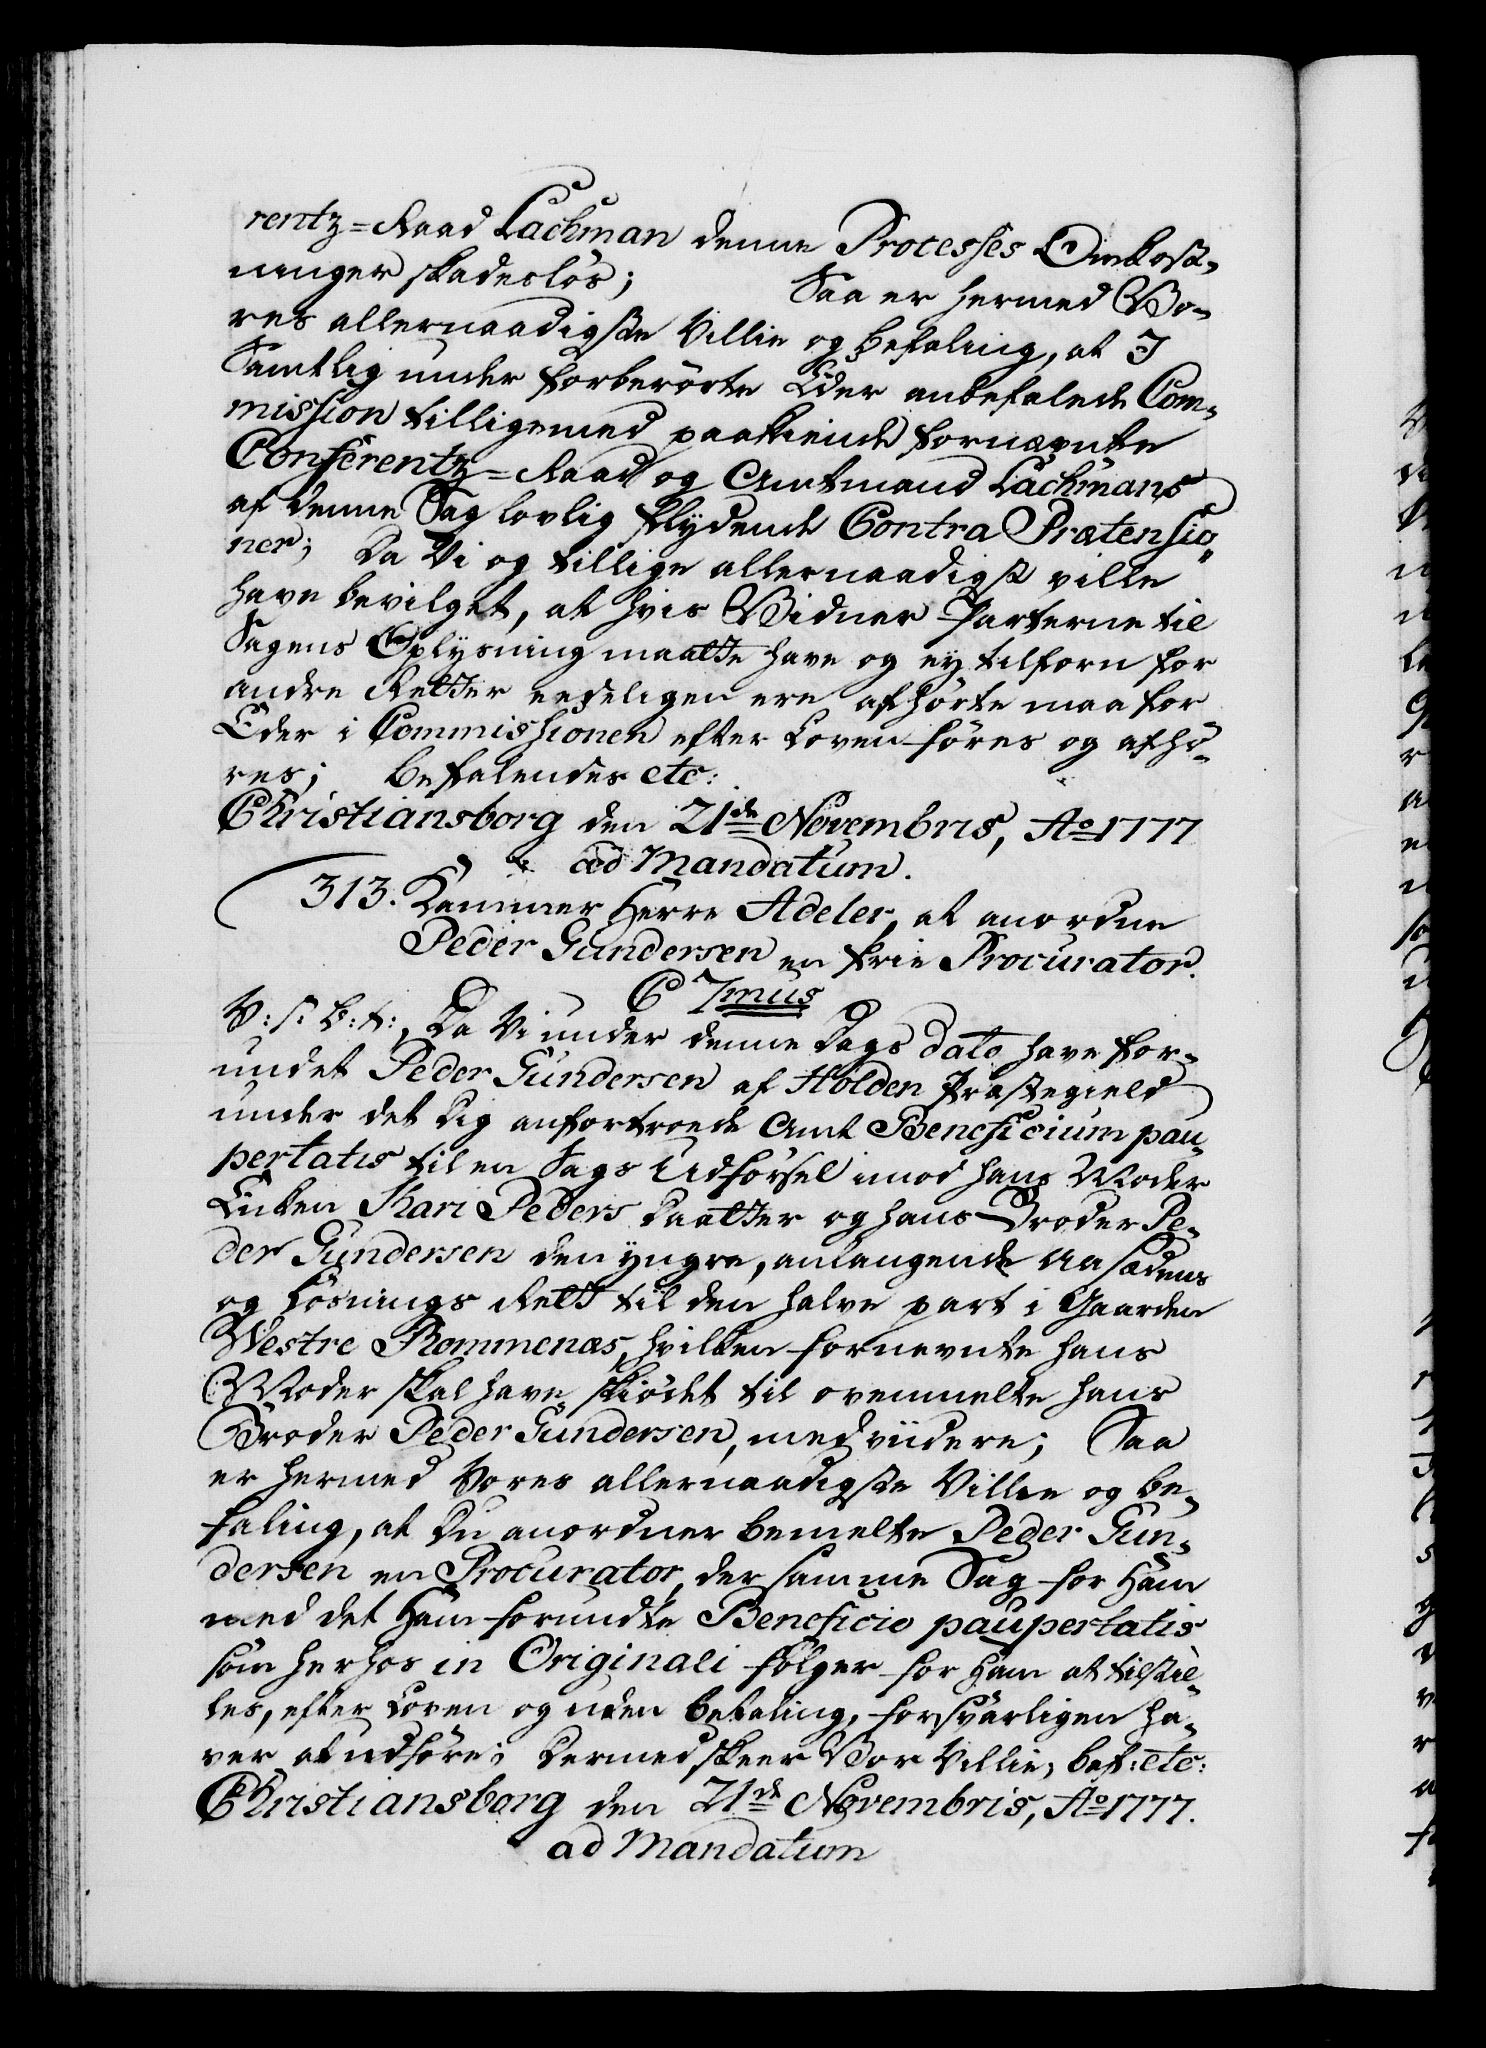 rentz=Raad Lachman denne Processes Omkost-
ninger skadeslös; Saa er hermed Vo-
res allernaadigste Villie og Befaling, at I
Samtlig under forberörte Eder anbefalede Com-
mission tilligemed paakiende fornævnte
Conferentz=Raad og Amtmand Lachmans
af denne Sag lovlig flydende Contra Prætensio-
ner; Da Vi og tillige allernaadigst ville
have bevilget, at hvis Vidner Parterne til
Sagens Oplysning maatte have og ey tilforn for
andre Retter eedeligen ere afhörte maa for
Eder i Commissionen efter Loven föres og afhö-
res; Befalendes etc:
Christiansborg den 21de Novembris, Ao 1777
ad Mandatum.
313. Kammer Herre Adeler, at anordne
Peder Gundersen en frie Procurator.
C 7mus
V: S: B: t:, Da Vi under denne Dags dato have for-
undet Peder Gundersen af Holden Præstegield
under det Dig anfortroede Amt Beneficium pau-
pertatis til en Sags Udförsel imod hans Moder
Enken Kari Peders Daatter og hans Broder Pe-
der Gundersen den yngre, anlangende Aasædens
og Lösnings Rett til den halve part i Gaarden
Westre Rommenæs, hvilken fornevnte hans
Moder skal have skiödet til ovenmelte hans
Broder Peder Gundersen, med viidere; Saa
er hermed Vores allernaadigste Villie og Be-
faling, at Du anordner bemelte Peder Gun-
dersen en Procurator, der samme Sag for Ham
med det Ham forundte Beneficio paupertatis
som herhos in Originali fölger for Ham at tilstil-
les, efter Loven og uden Betaling, forsvarligen ha-
ver at udföre; Dermed skeer Vor Villie, bef: etc:
Christiansborg den 21de Novembris, Ao 1777.
ad Mandatum